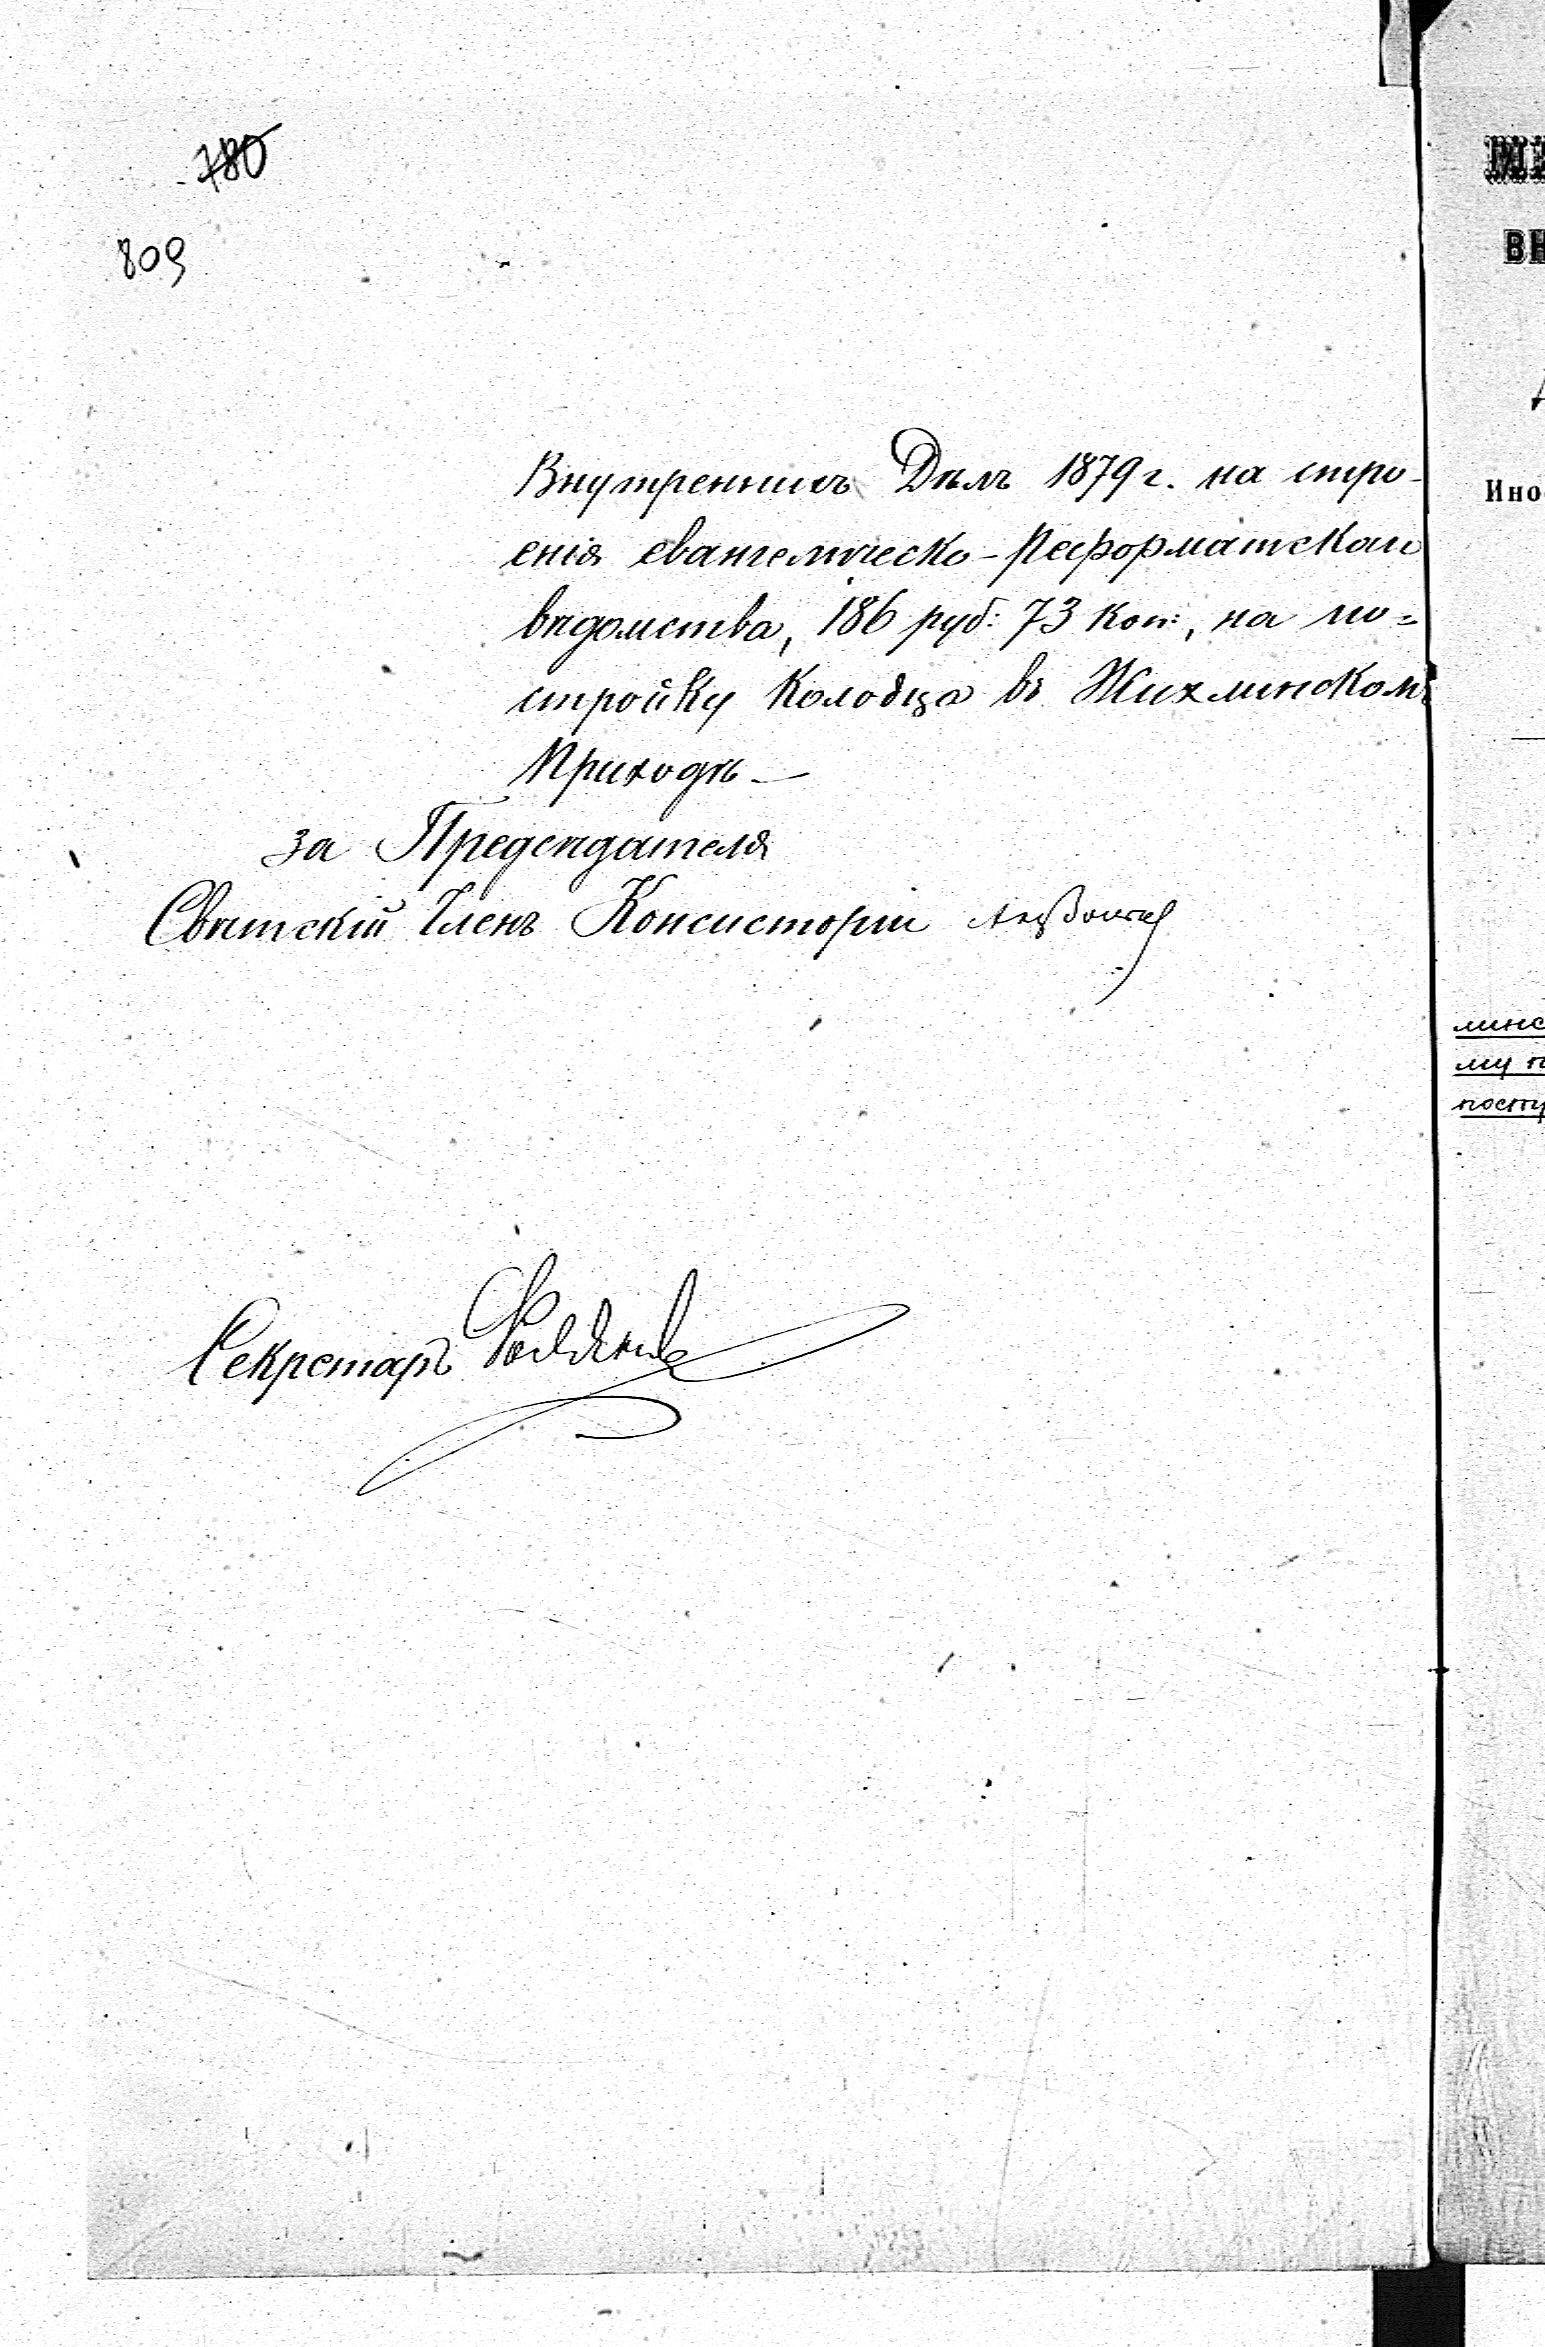 780
809
Внутреннихъ Дѣлъ 1879 г. на стро-
енія евангелическо-Реформатскаго
вѣдомства, 186 руб: 73 коп:, на по=
стройку колодца въ Жижмискомъ
Приходѣ —
за Предсѣдателя
Свѣтскій Членъ Консисторіи
Секретарь
ВН
Ино
минс
му п
посту